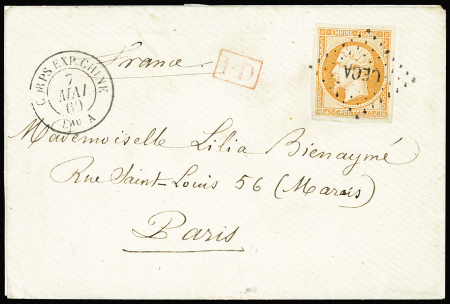 CORPS EXP. CHINE
7
MAI
60
BAU A
France
PD
EMPIRE FRANC
CECA
Mademoiselle Lilia Bienaymé
Rue Saint-Louis 56 (Marais)
Paris